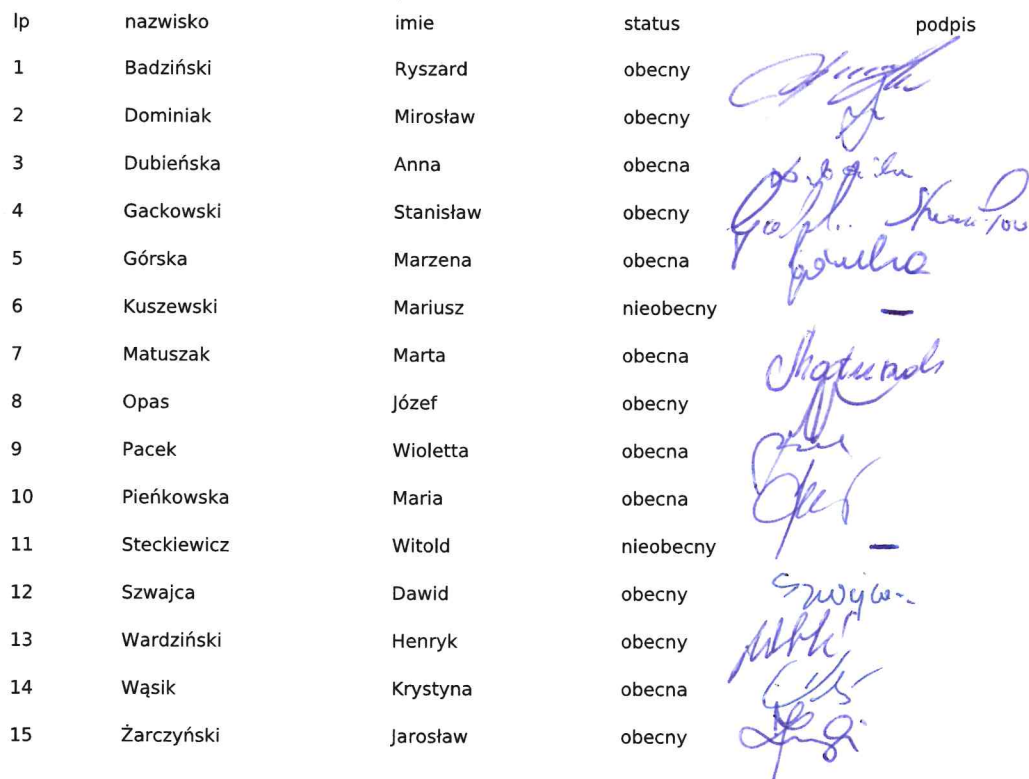 lp nazwisko imie status podpis
1 Badziński Ryszard obecny
2 Dominiak Mirosław obecny
3 Dubieńska Anna obecna
4 Gackowski Stanisław obecny
5 Górska Marzena obecna
6 Kuszewski Mariusz nieobecny —
7 Matuszak Marta obecna
8 Opas Józef obecny
9 Pacek Wioletta obecna
10 Pieńkowska Maria obecna
11 Steckiewicz Witold nieobecny —
12 Szwajca Dawid obecny
13 Wardziński Henryk obecny
14 Wąsik Krystyna obecna
15 Żarczyński Jarosław obecny